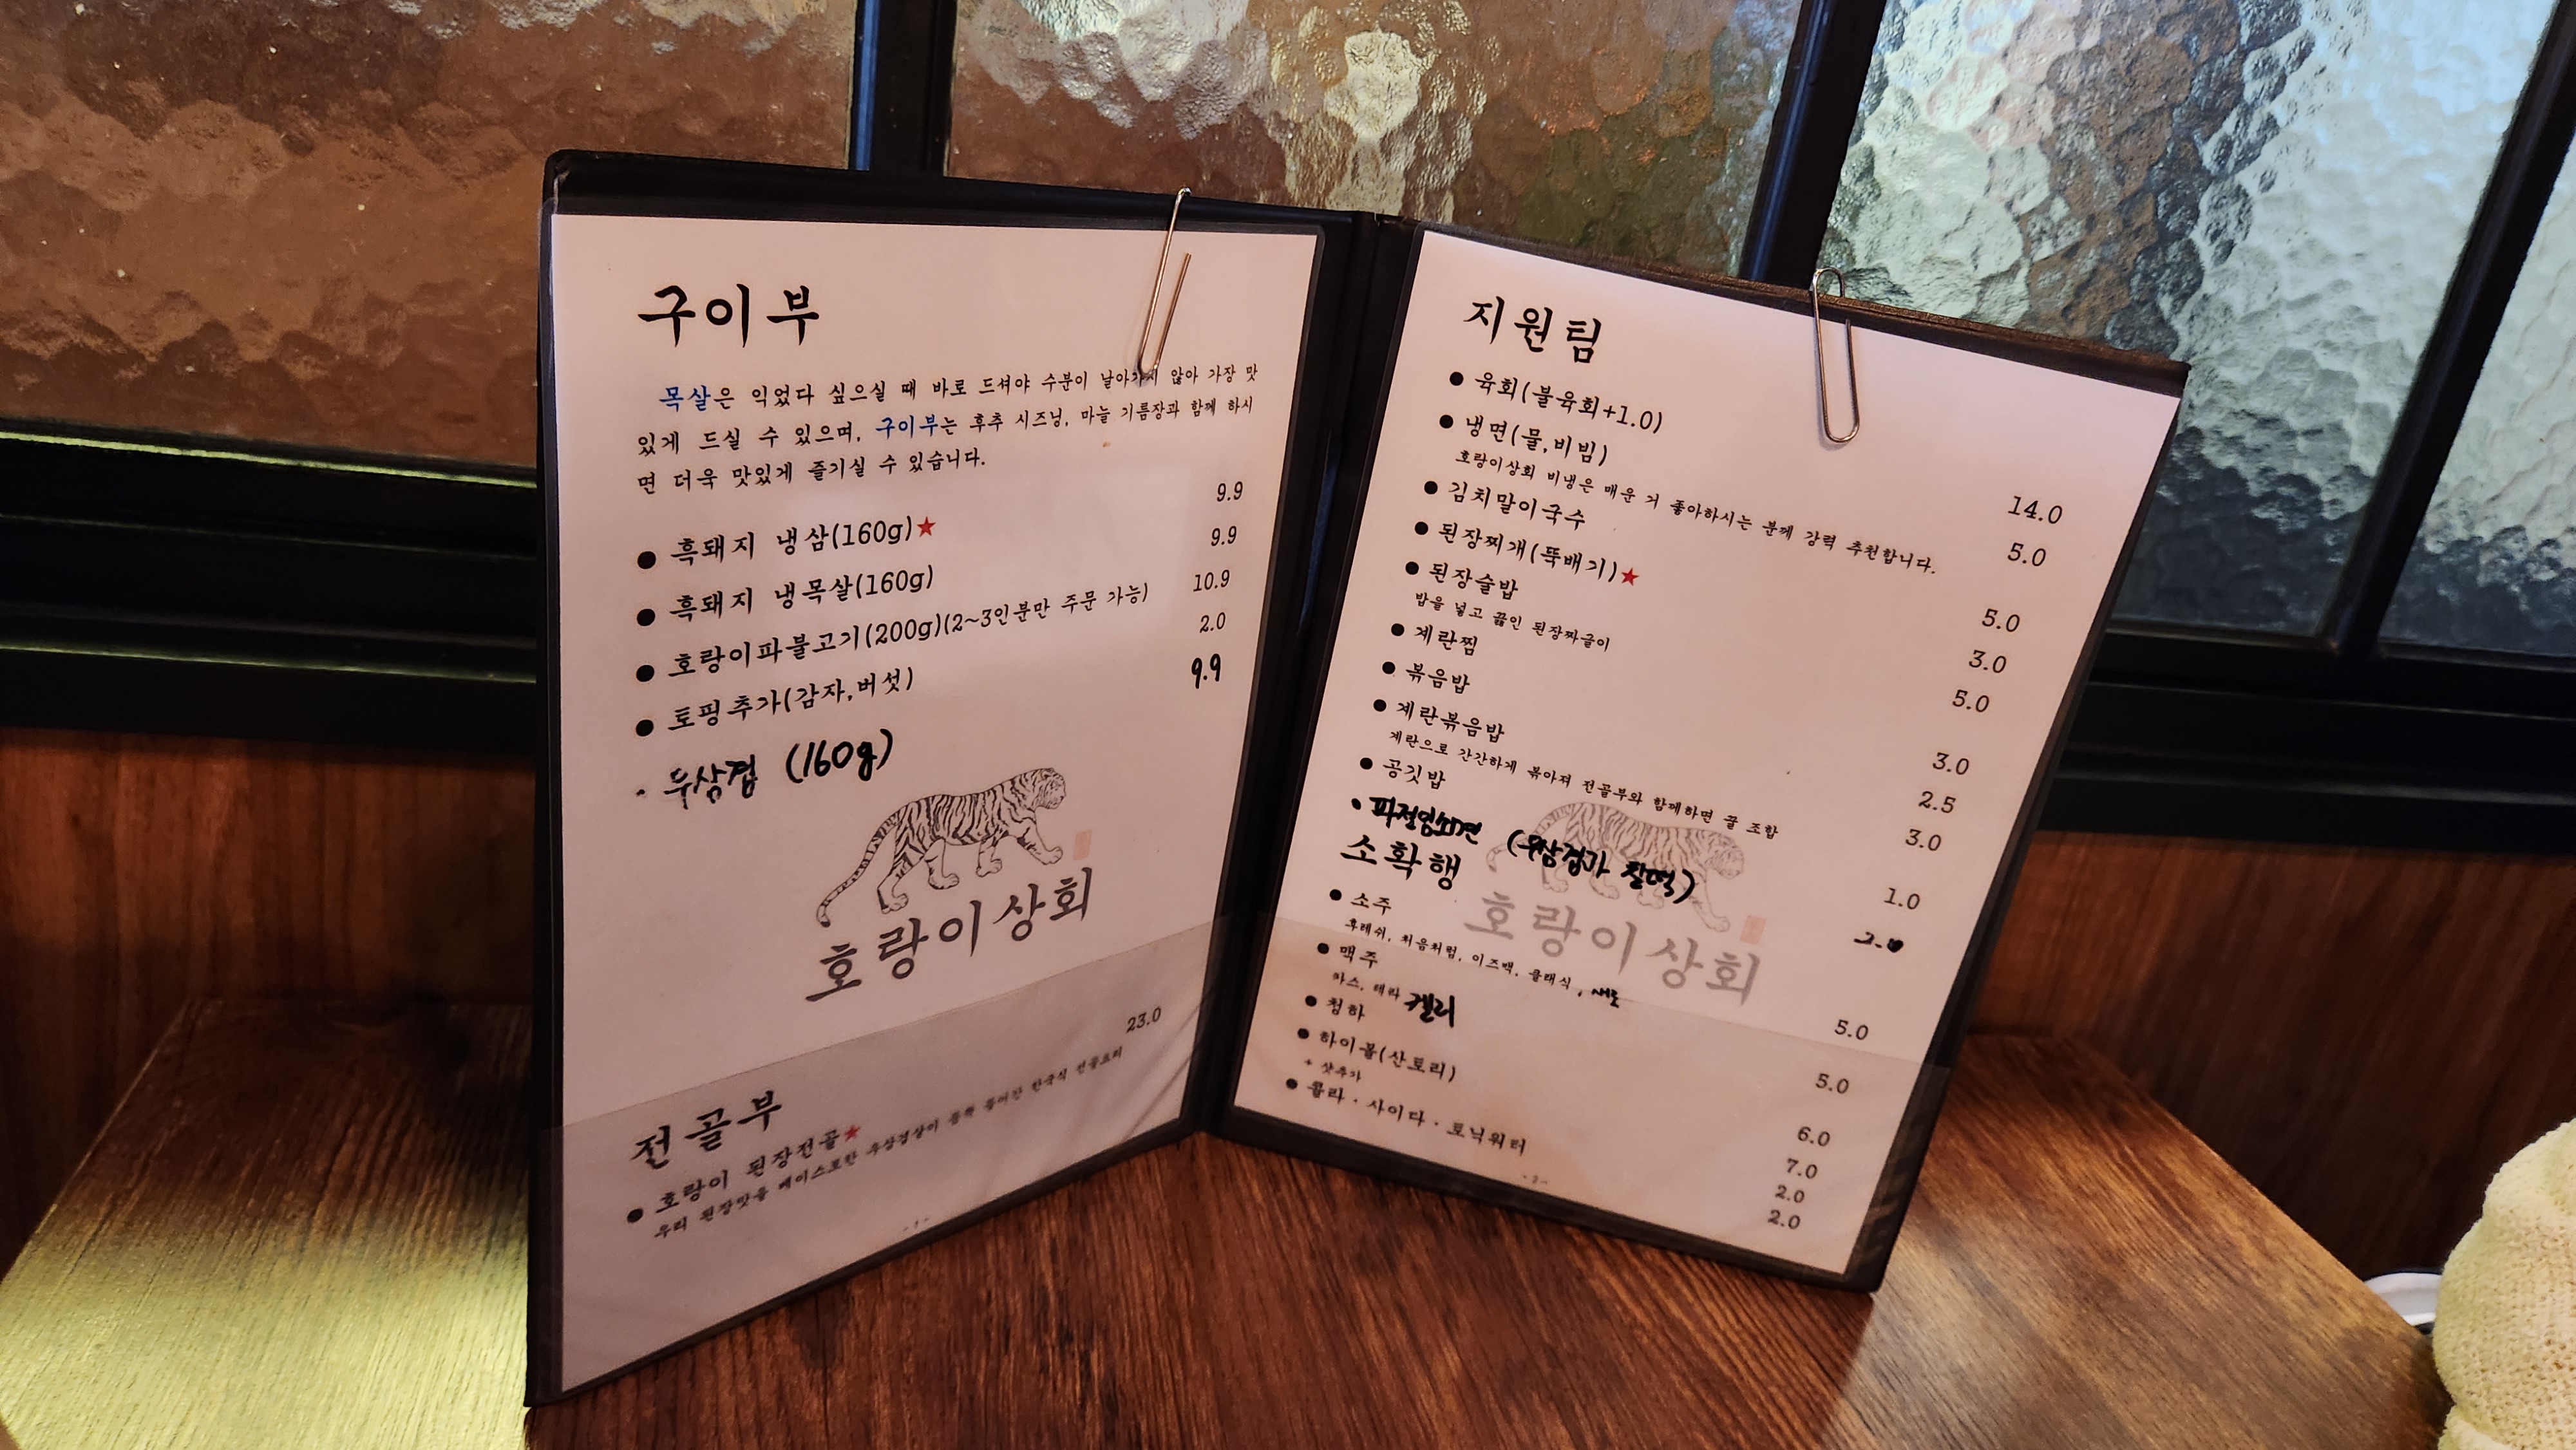 구이부
목살은 익었다 싶으실 때 바로 드셔야 수분이 날아가지 않아 가장 맛
있게 드실 수 있으며, 구이부는 후추 시즈닝, 마늘 기름장과 함께 하시
면 더욱 맛있게 즐기실 수 있습니다.
● 흑돼지 냉삼(160g)★ 9.9
● 흑돼지 냉목살(160g) 9.9
● 호랑이파불고기(200g)(2~3인분만 주문 가능) 10.9
● 토핑추가(감자,버섯) 2.0
· 우삼겹 (160g) 9.9
호랑이상회
전골부
● 호랑이 된장전골★ 23.0
우리 된장맛을 베이스로한 우삼겹살이 듬뿍 들어간 한국식 전골요리
- 1 -
지원팀
● 육회(불육회+1.0) 14.0
● 냉면(물,비빔) 5.0
호랑이상회 비냉은 매운 거 좋아하시는 분께 강력 추천합니다.
● 김치말이국수 5.0
● 된장찌개(뚝배기)★ 3.0
● 된장술밥 5.0
밥을 넣고 끓인 된장짜글이
● 계란찜 3.0
● 볶음밥 2.5
● 계란볶음밥 3.0
계란으로 간간하게 볶아져 전골부와 함께하면 꿀 조합
● 공깃밥 1.0
(우삼겹과 찰떡)
호랑이상회
소확행
● 소주 5.0
후레쉬, 처음처럼, 이즈백, 클래식, 새로
● 맥주 5.0
카스, 테라 켈리
● 청하 6.0
● 하이볼(산토리) 7.0
+ 샷추가 2.0
● 콜라 · 사이다 · 토닉워터 2.0
- 2 -